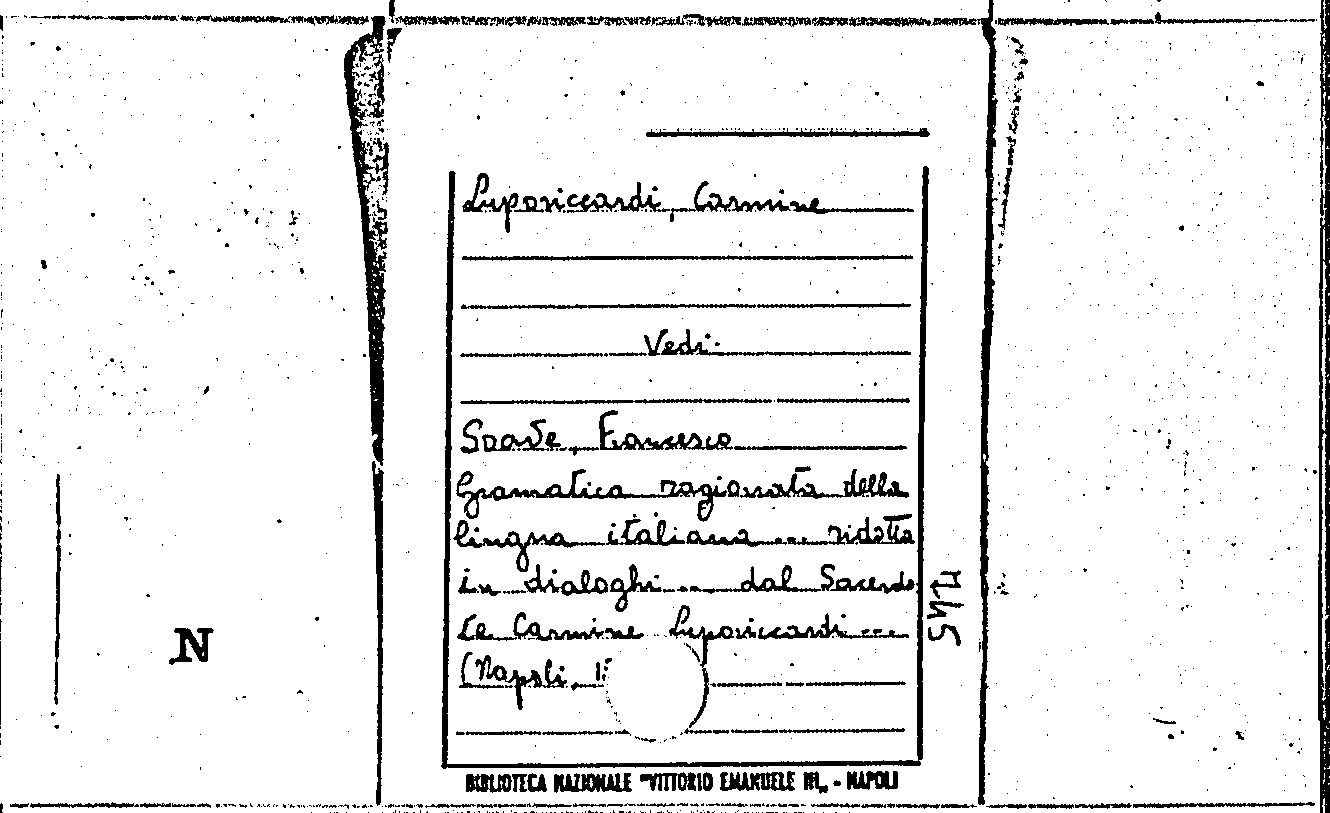 Luporiccardi, Carmine
Vedi:
Soave, Francesco
Gramatica ragionata della
lingua italiana ... ridotta
in dialoghi ... dal Sacerdo
te Carmine Luporiccardi ...
(Napoli, 1
N
BIBLIOTECA NAZIONALE "VITTORIO EMANUELE III„ - NAPOLI